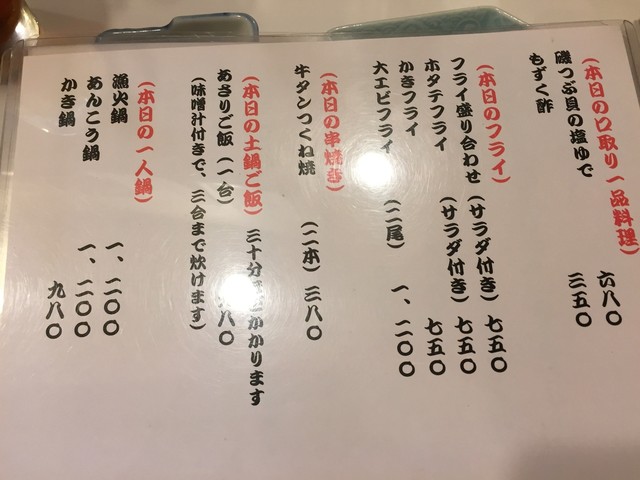 (本日の口取り一品料理)
磯つぶ貝の塩ゆで 六八〇
もずく酢 三五〇
(本日のフライ)
フライ盛り合わせ (サラダ付き) 七五〇
ホタテフライ (サラダ付き) 七五〇
かきフライ 七五〇
大エビフライ (二尾) 一、二〇〇
(本日の串焼き)
牛タンつくね焼 (二本) 三八〇
(本日の土鍋ご飯) 三十分 かかります
あさりご飯 (一台) 八〇
(味噌汁付きで、三合まで炊けます)
(本日の一人鍋)
漁火鍋 一、二〇〇
あんこう鍋 一、二〇〇
かき鍋 九八〇